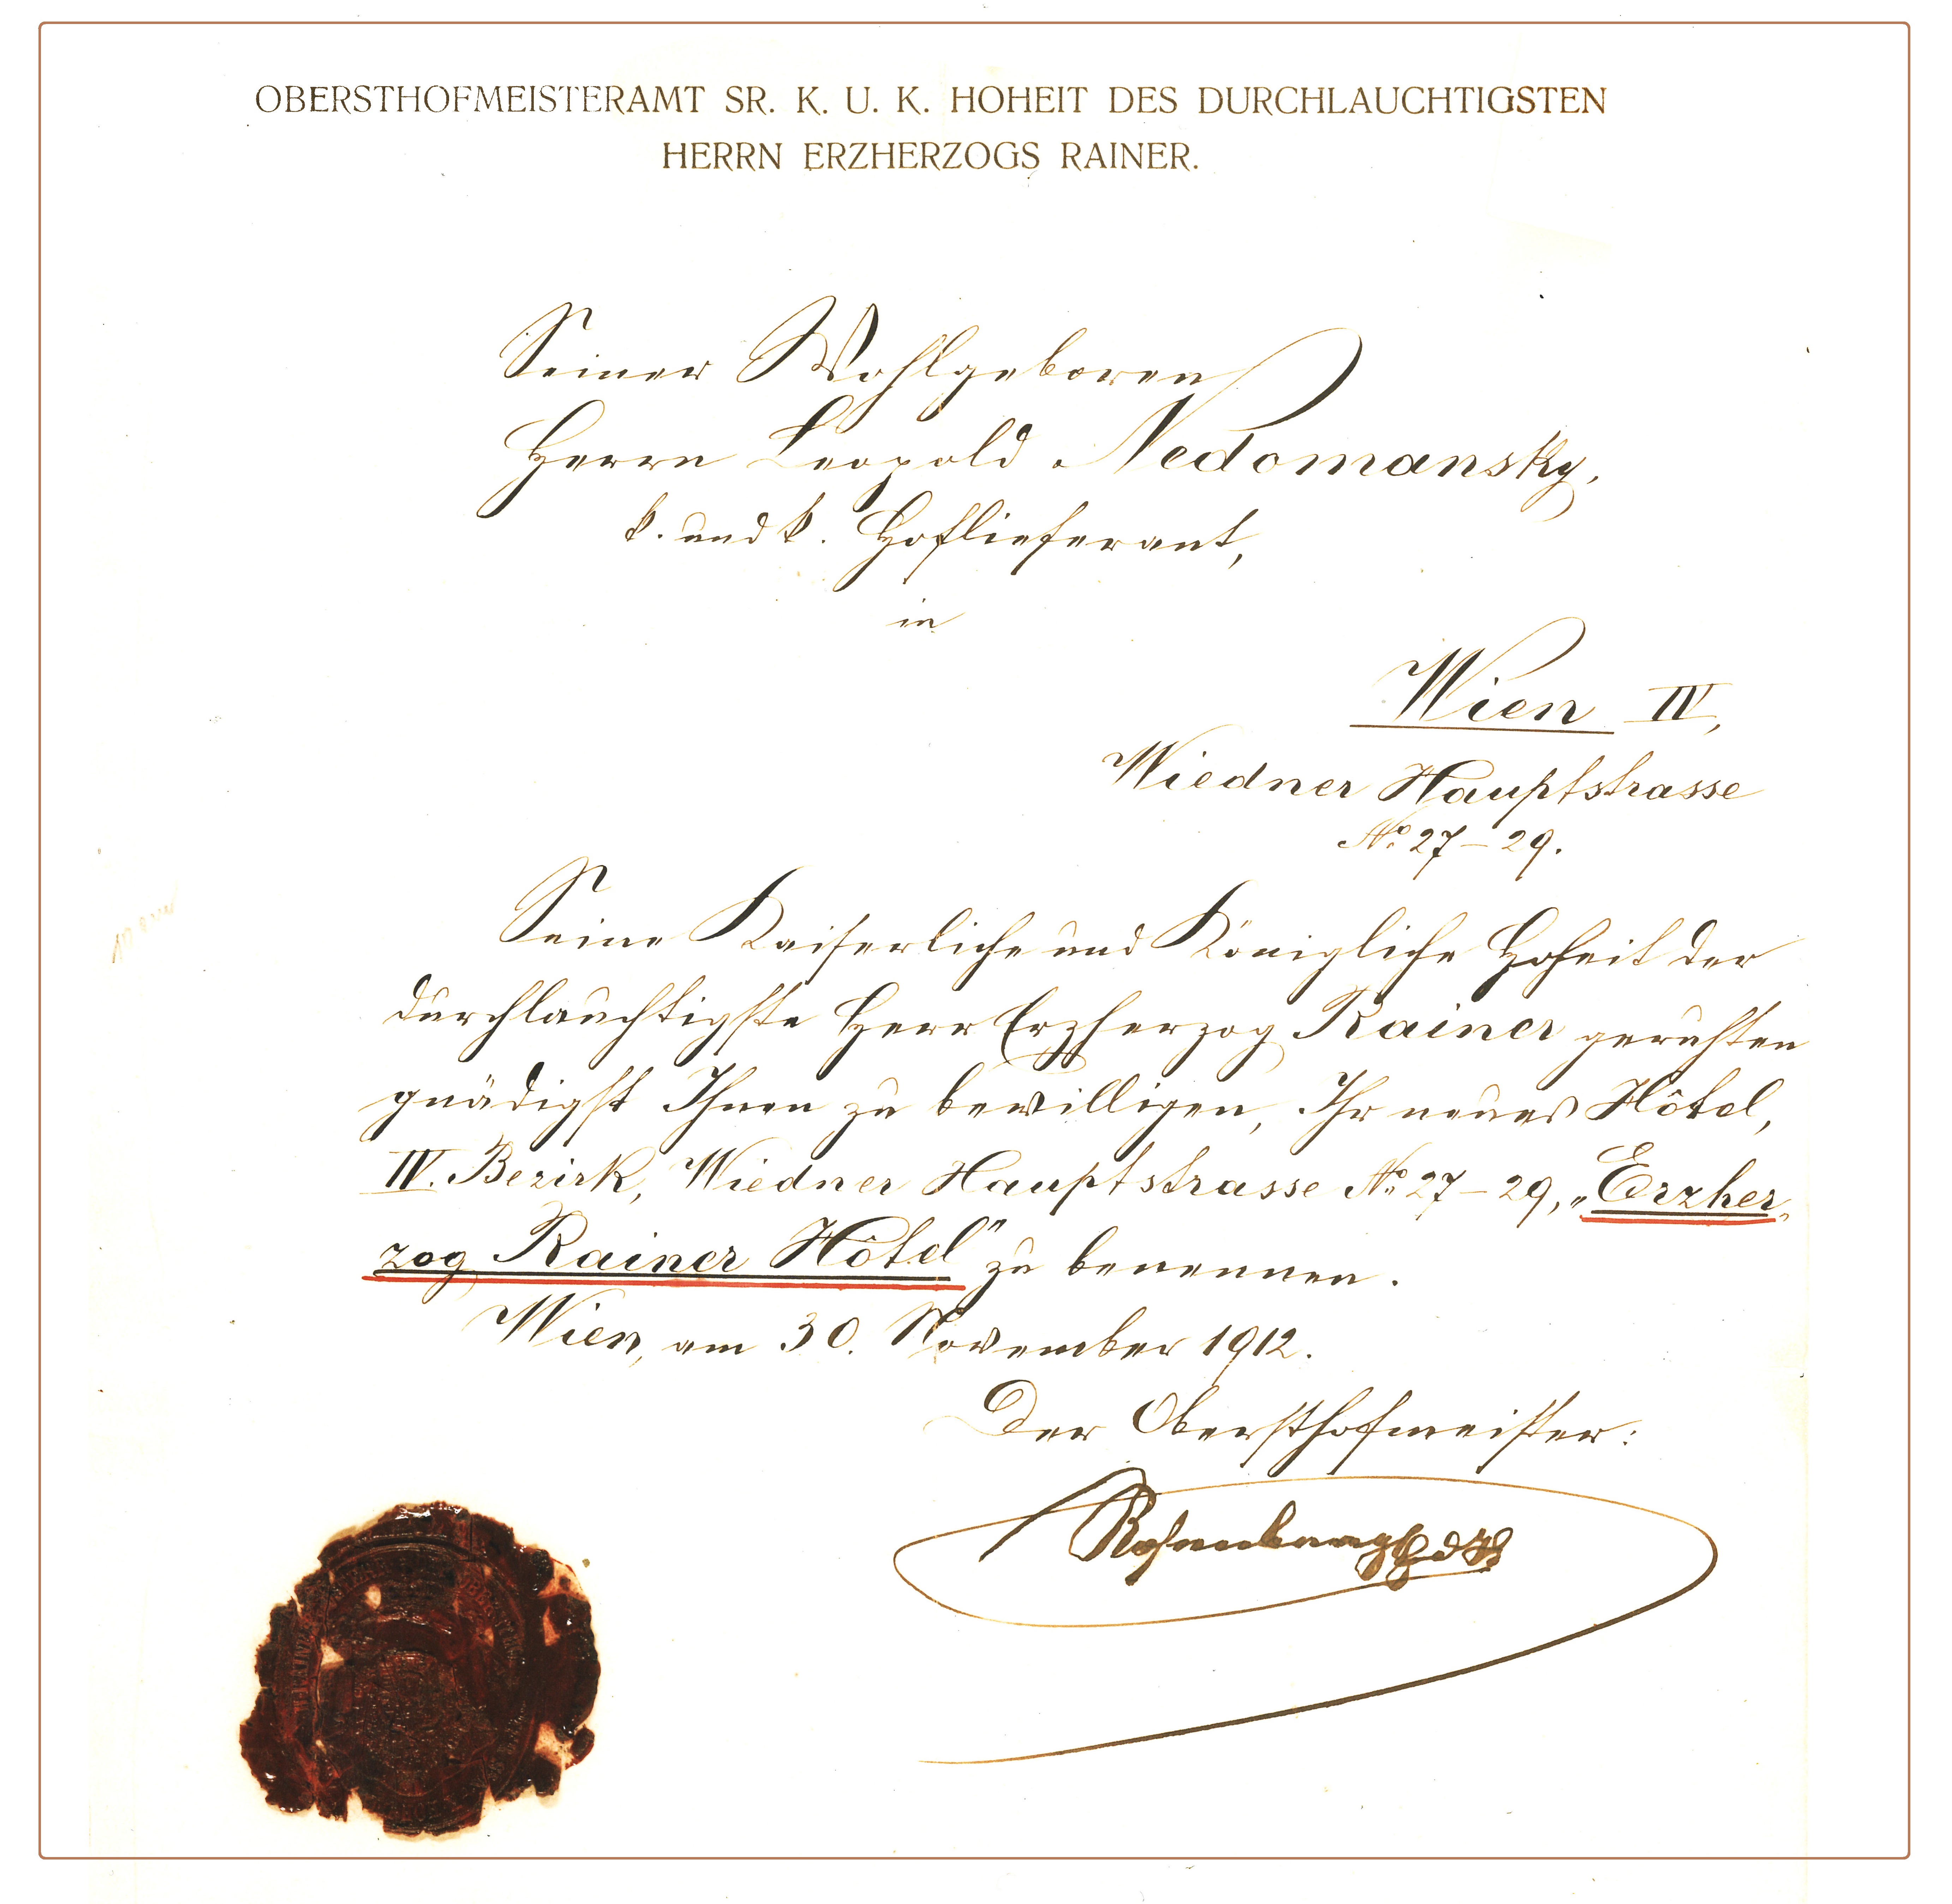 OBERSTHOFMEISTERAMT SR. K. U. K. HOHEIT DES DURCHLAUCHTIGSTEN
HERRN ERZHERZOGS RAINER.
Seiner Wohlgeboren
Herrn Leopold Nedomansky,
k. und k. Hoflieferant,
in
Wien IV,
Wiedner Hauptstrasse
No. 27 – 29.
Seine Kaiserliche und Königliche Hoheit der
durchlauchtigste Herr Erzherzog Rainer geruhten
gnädigst Ihnen zu bewilligen, Ihr neues Hôtel,
IV. Bezirk, Wiedner Hauptstrasse No. 27 – 29, „Erzher„
zog Rainer Hôtel" zu benennen.
Wien, am 30. November 1912.
Der Obersthofmeister: